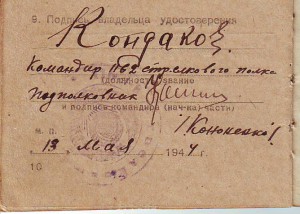 9. Подпись владельца удостоверения
Кондаков
Командир 1162 стрелкового полка
(должность, звание
подполковник
и подпись командира (нач-ка) части)
/Кононенко/
М. П.
13 мая 1944